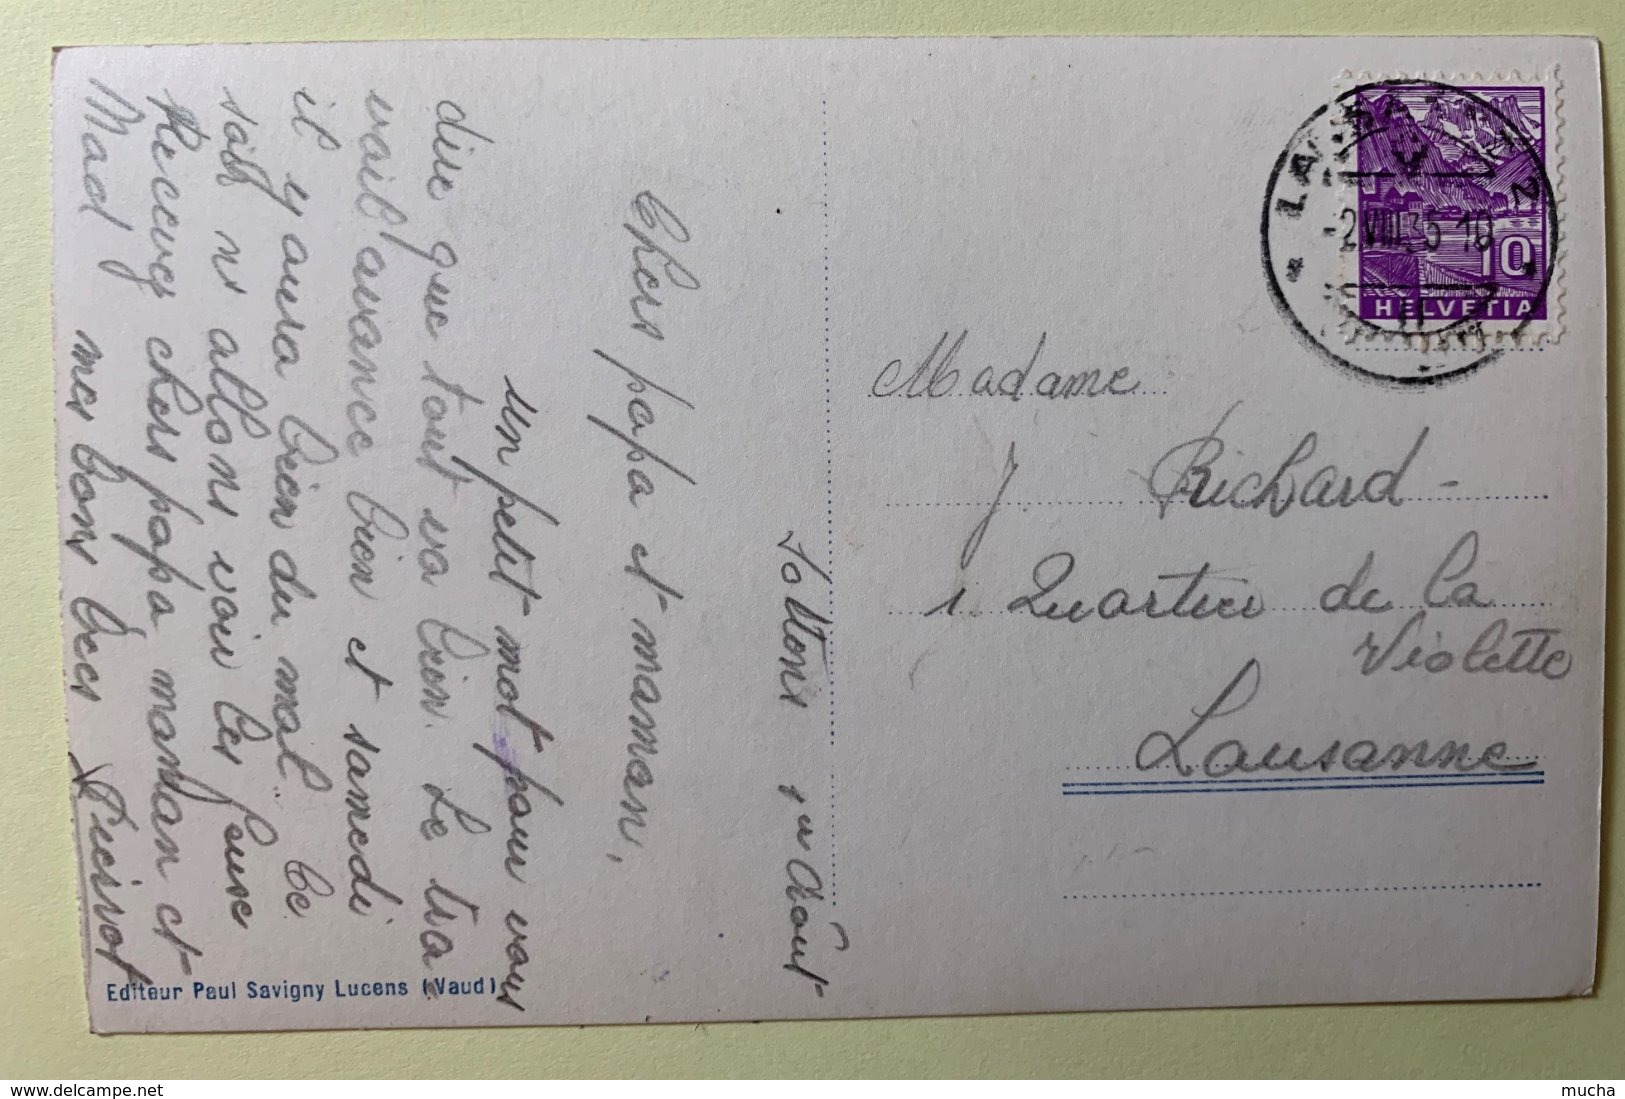 Sottens 1er Août
Chers papa et maman,
un petit mot pour vous
dire que tout va bien. Le tra-
vail avance bien et samedi
il y aura bien du mal. Ce
soir ns allons voir les
Recevez chers papa maman et
Mad mes bons bees
Editeur Paul Savigny Lucens (Vaud)
Madame
J. Richard-
1 Quartier de la
Violette
Lausanne
2.VIII.35 18
10
HELVETIA
mucha